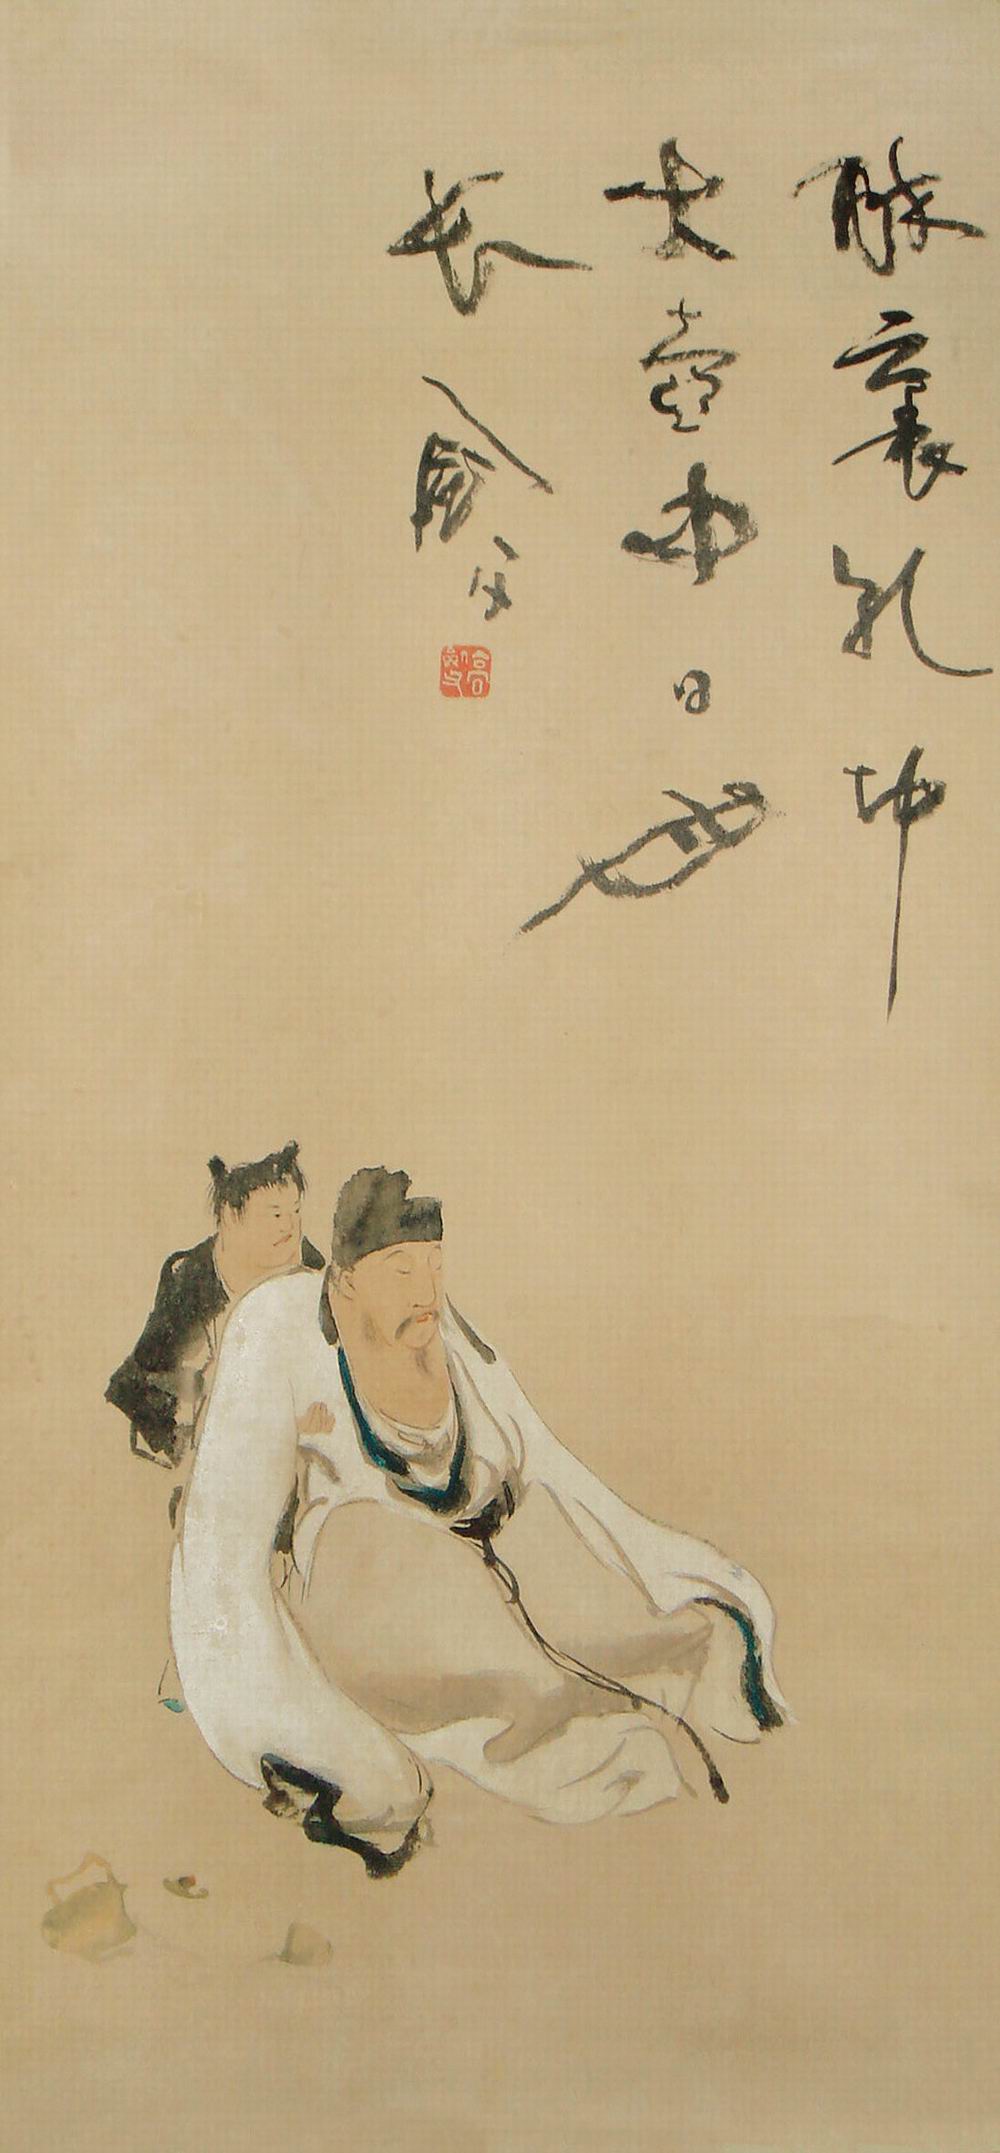 醉裏乾坤
大壺中日月
長